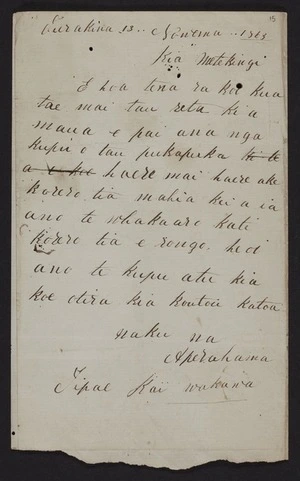 15
Turakina 13.. Nowema.. 1863
Kia Metekingi
E hoa tena ra koe kua
tae mai tau reta ki a
maua e pai ana nga
kupu o tau pukapuka
haere mai haere ake
korero tia mahia kei a ia
ano te whakaaro kati
korero tia e rongo. hoi
ano te kupu atu kia
koe otira kia koutou katoa
naku na
Aperahama
Tipae Kai wakawa